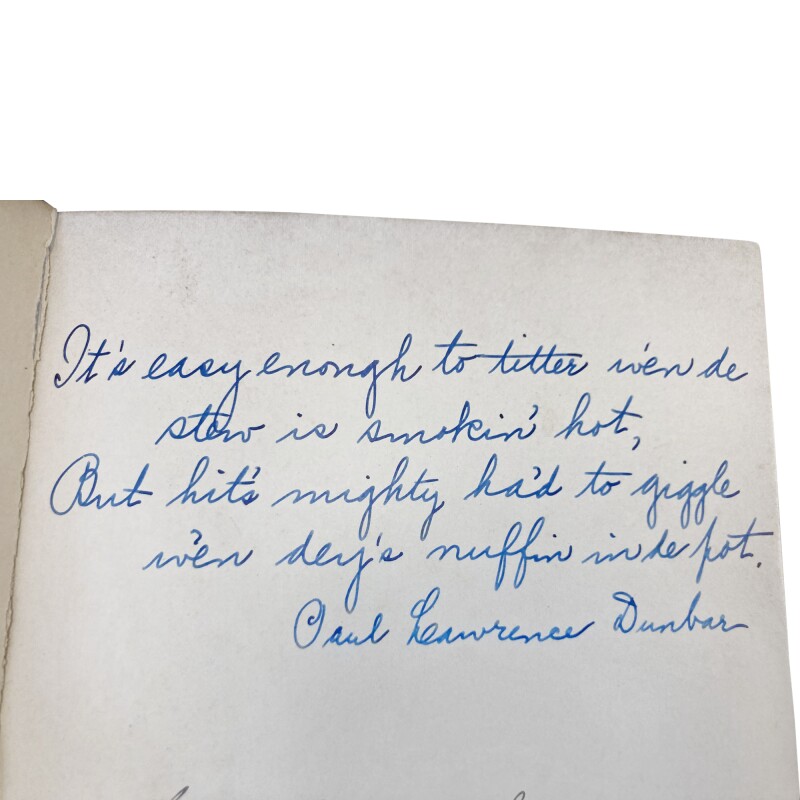 It's easy enough to titter w'en de
stew is smokin' hot,
But hit's mighty ha'd to giggle
w'en dey's nuffin in de pot.
Paul Lawrence Dunbar